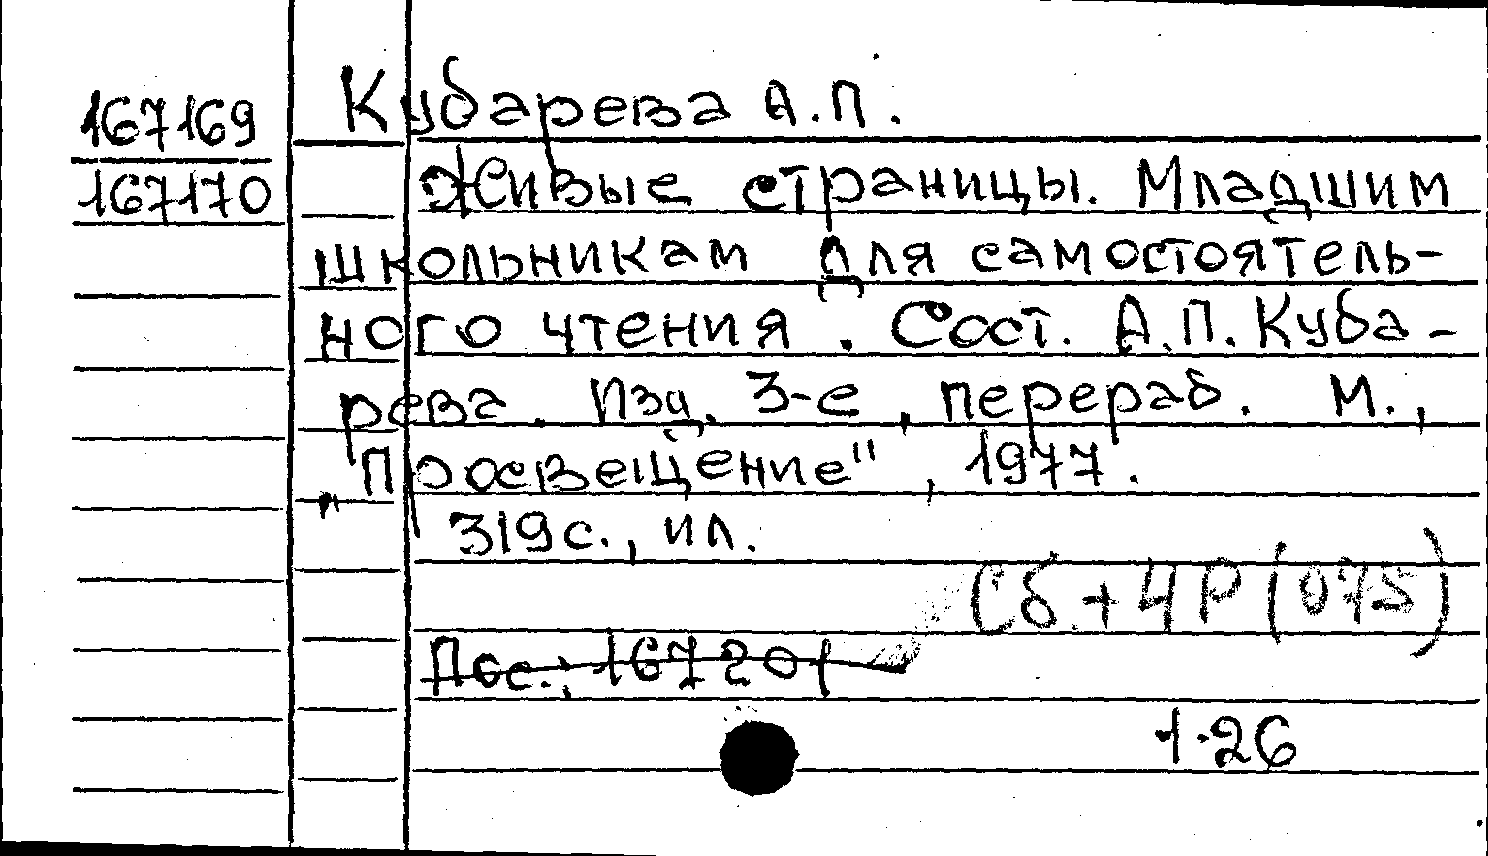 167169
167170
Кубарева А.П.
Живые страницы. Младшим
школьникам для самостоятель-
ного чтения. Сост. А.П. Куба-
рева. Изд. 3-е, перераб. М.,
"Просвещение", 1977.
319с., ил.
Сб+4Р(075)
Пос.: 167201
1.26